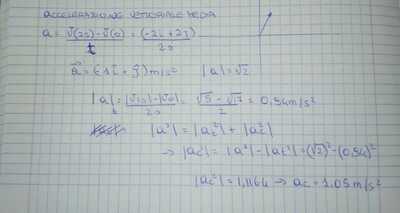 ACCELERAZIONE VETTORIALE MEDIA
a = v̄(2s) - v̄(0) / t = (-2i + 2j) / 2s
a⃗ = (-1i + j) m/s² |a| = √2
|a|t = |v(2s)| - |v(0)| / 2s = √5 - √17 / 2 = 0,94 m/s²
|a²| = |at²| + |ac²|
→ |ac²| = |a²| - |at²| = (√2)² - (0,94)²
|ac²| = 1,1164 → ac = 1,05 m/s²